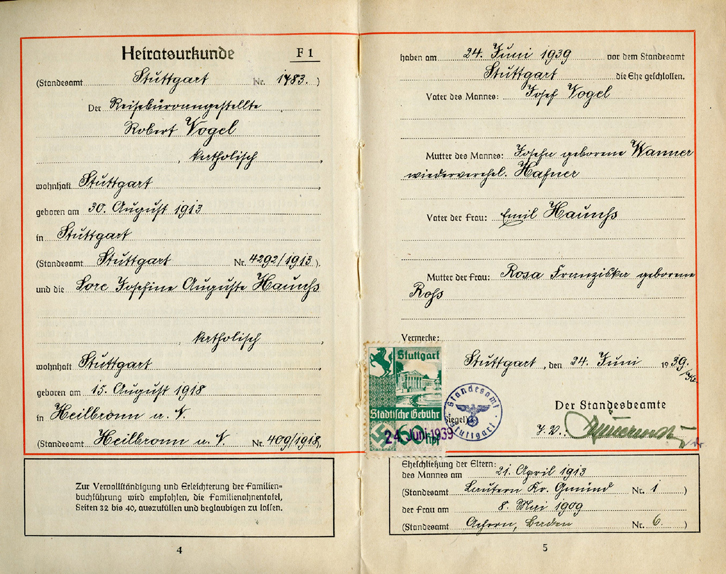 Heiratsurkunde F 1
(Standesamt Stuttgart Nr. 1483.)
Der Reisebüroangestellte
Robert Vogel
, katholisch
wohnhaft Stuttgart
geboren am 30. August 1913
in Stuttgart
(Standesamt Stuttgart Nr. 4292/1913.)
und die Lore Josefine Auguste Haunss
katholisch
wohnhaft Stuttgart
geboren am 15. August 1918
in Heilbronn a. N.
(Standesamt Heilbronn a. N. Nr. 409/1918.
Zur Vervollständigung und Erleichterung der Familien-
buchführung wird empfohlen, die Familienahnentafel,
Seiten 32 bis 40, auszufüllen und beglaubigen zu lassen.
4
haben am 24. Juni 1939 vor dem Standesamt
Stuttgart die Ehe geschlossen.
Vater des Mannes: Josef Vogel
Mutter des Mannes: geborene Wanner
wiederverehel. Hafner
Vater der Frau: Emil Haunss
Mutter der Frau: Rosa Franziska geborene
Rohs
Vermerke:
Stuttgart, den 24. Juni 1939.
Der Standesbeamte
J. V.
Stuttgart
Städtische Gebühr
24. Juni 1939
60
Standesamt
Stuttgart
Eheschließung der Eltern:
des Mannes am 21. April 1913
(Standesamt Lautern Kr. Gmünd Nr. 1 )
der Frau am 8. Mai 1909
(Standesamt Achern, Baden Nr. 6. )
5